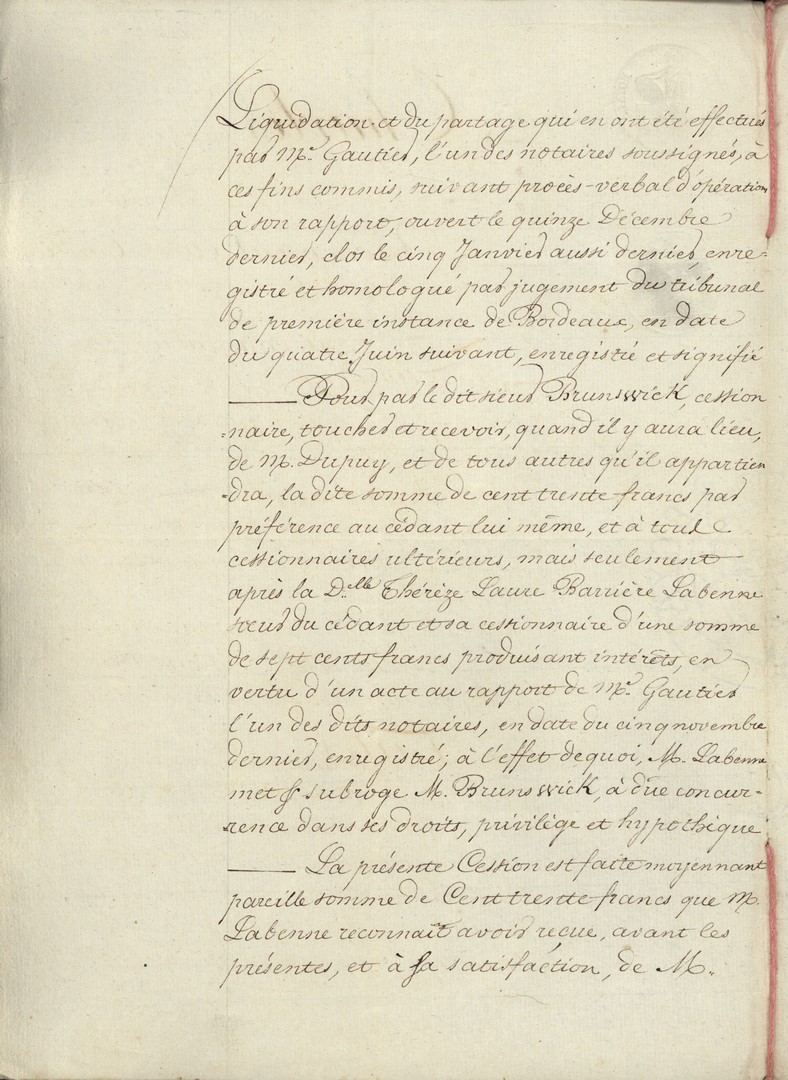 Liquidation et du partage qui en ont été effectués
par Me. Gautier, l'un des notaires soussignés, à
ces fins commis, suivant procès-verbal d'opération
à son rapport, ouvert le quinze Décembre
dernier, clos le cinq Janvier aussi dernier, enre-
gistré et homologué par jugement du tribunal
de première instance de Bordeaux, en date
du quatre Juin suivant, enregistré et signifié
Pour par le dit sieur Brunswick, cession
=naire, toucher et recevoir, quand il y aura lieu,
de M. Dupuy, et de tous autres qu'il appartien
-dra, la dite somme de cent trente francs par
préférence au cédant lui même, et à tous
cessionnaires ultérieurs, mais seulement
après la D.elle Thérèze Laure Barrière Labenne
sœur du cédant et sa cessionnaire d'une somme
de sept cents francs produisant intérêts, en
vertu d'un acte au rapport de Me. Gautier
l'un des dits notaires, en date du cinq novembre
dernier, enregistré; à l'effet de quoi, M. Labenne
met & subroge M. Brunswick, à dûe concur-
-rence dans ses droits, privilège et hypothèque
La présente Cession est faite moyennant
pareille somme de Cent trente francs que M.
Labenne reconnait avoir reçue, avant les
présentes, et à sa satisfaction, de M.